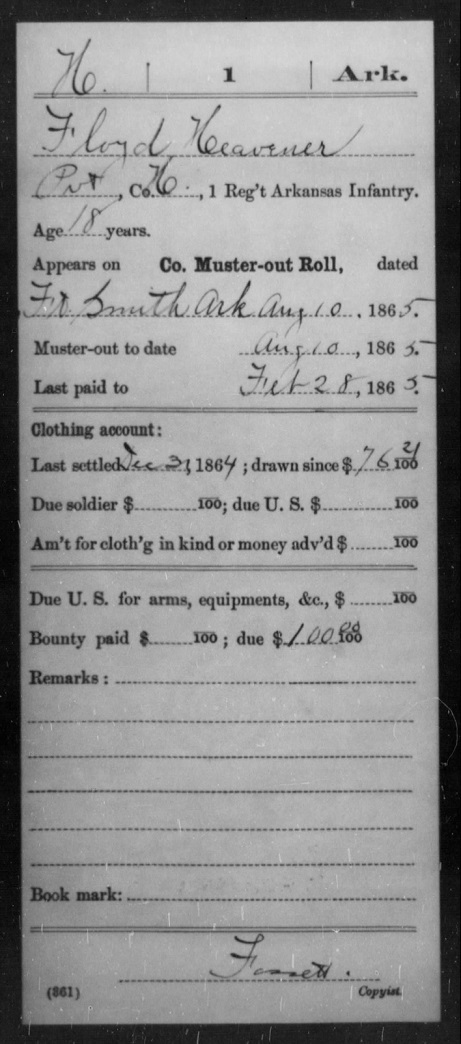 H. | 1 | Ark.
Floyd Heavener
Pvt, Co. H., 1 Reg't Arkansas Infantry.
Age 18 years.
Appears on Co. Muster-out Roll, dated
Ft. Smith Ark Aug 10, 1865.
Muster-out to date Aug 10, 1865.
Last paid to Feb 28, 1865.
Clothing account:
Last settled Dec 31, 1864; drawn since $ 76 21/100
Due soldier $ /100; due U. S. $ /100
Am't for cloth'g in kind or money adv'd $ /100
Due U. S. for arms, equipments, &c., $ /100
Bounty paid $ /100; due $ 100 00/100
Remarks:
Book mark:
Fossett.
(361) Copyist.